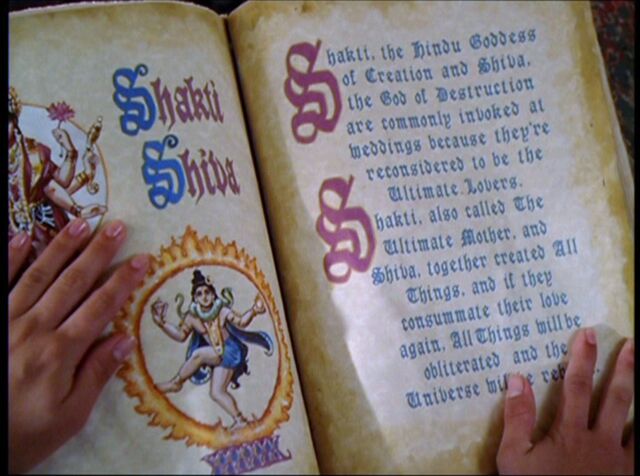 Shakti
Shiva
Shakti, the Hindu Goddess
of Creation and Shiva,
the God of Destruction
are commonly invoked at
weddings because they're
reconsidered to be the
Ultimate Lovers.
Shakti, also called The
Ultimate Mother, and
Shiva, together created All
Things, and if they
consummate their love
again, All Things will be
obliterated and the
Universe will be